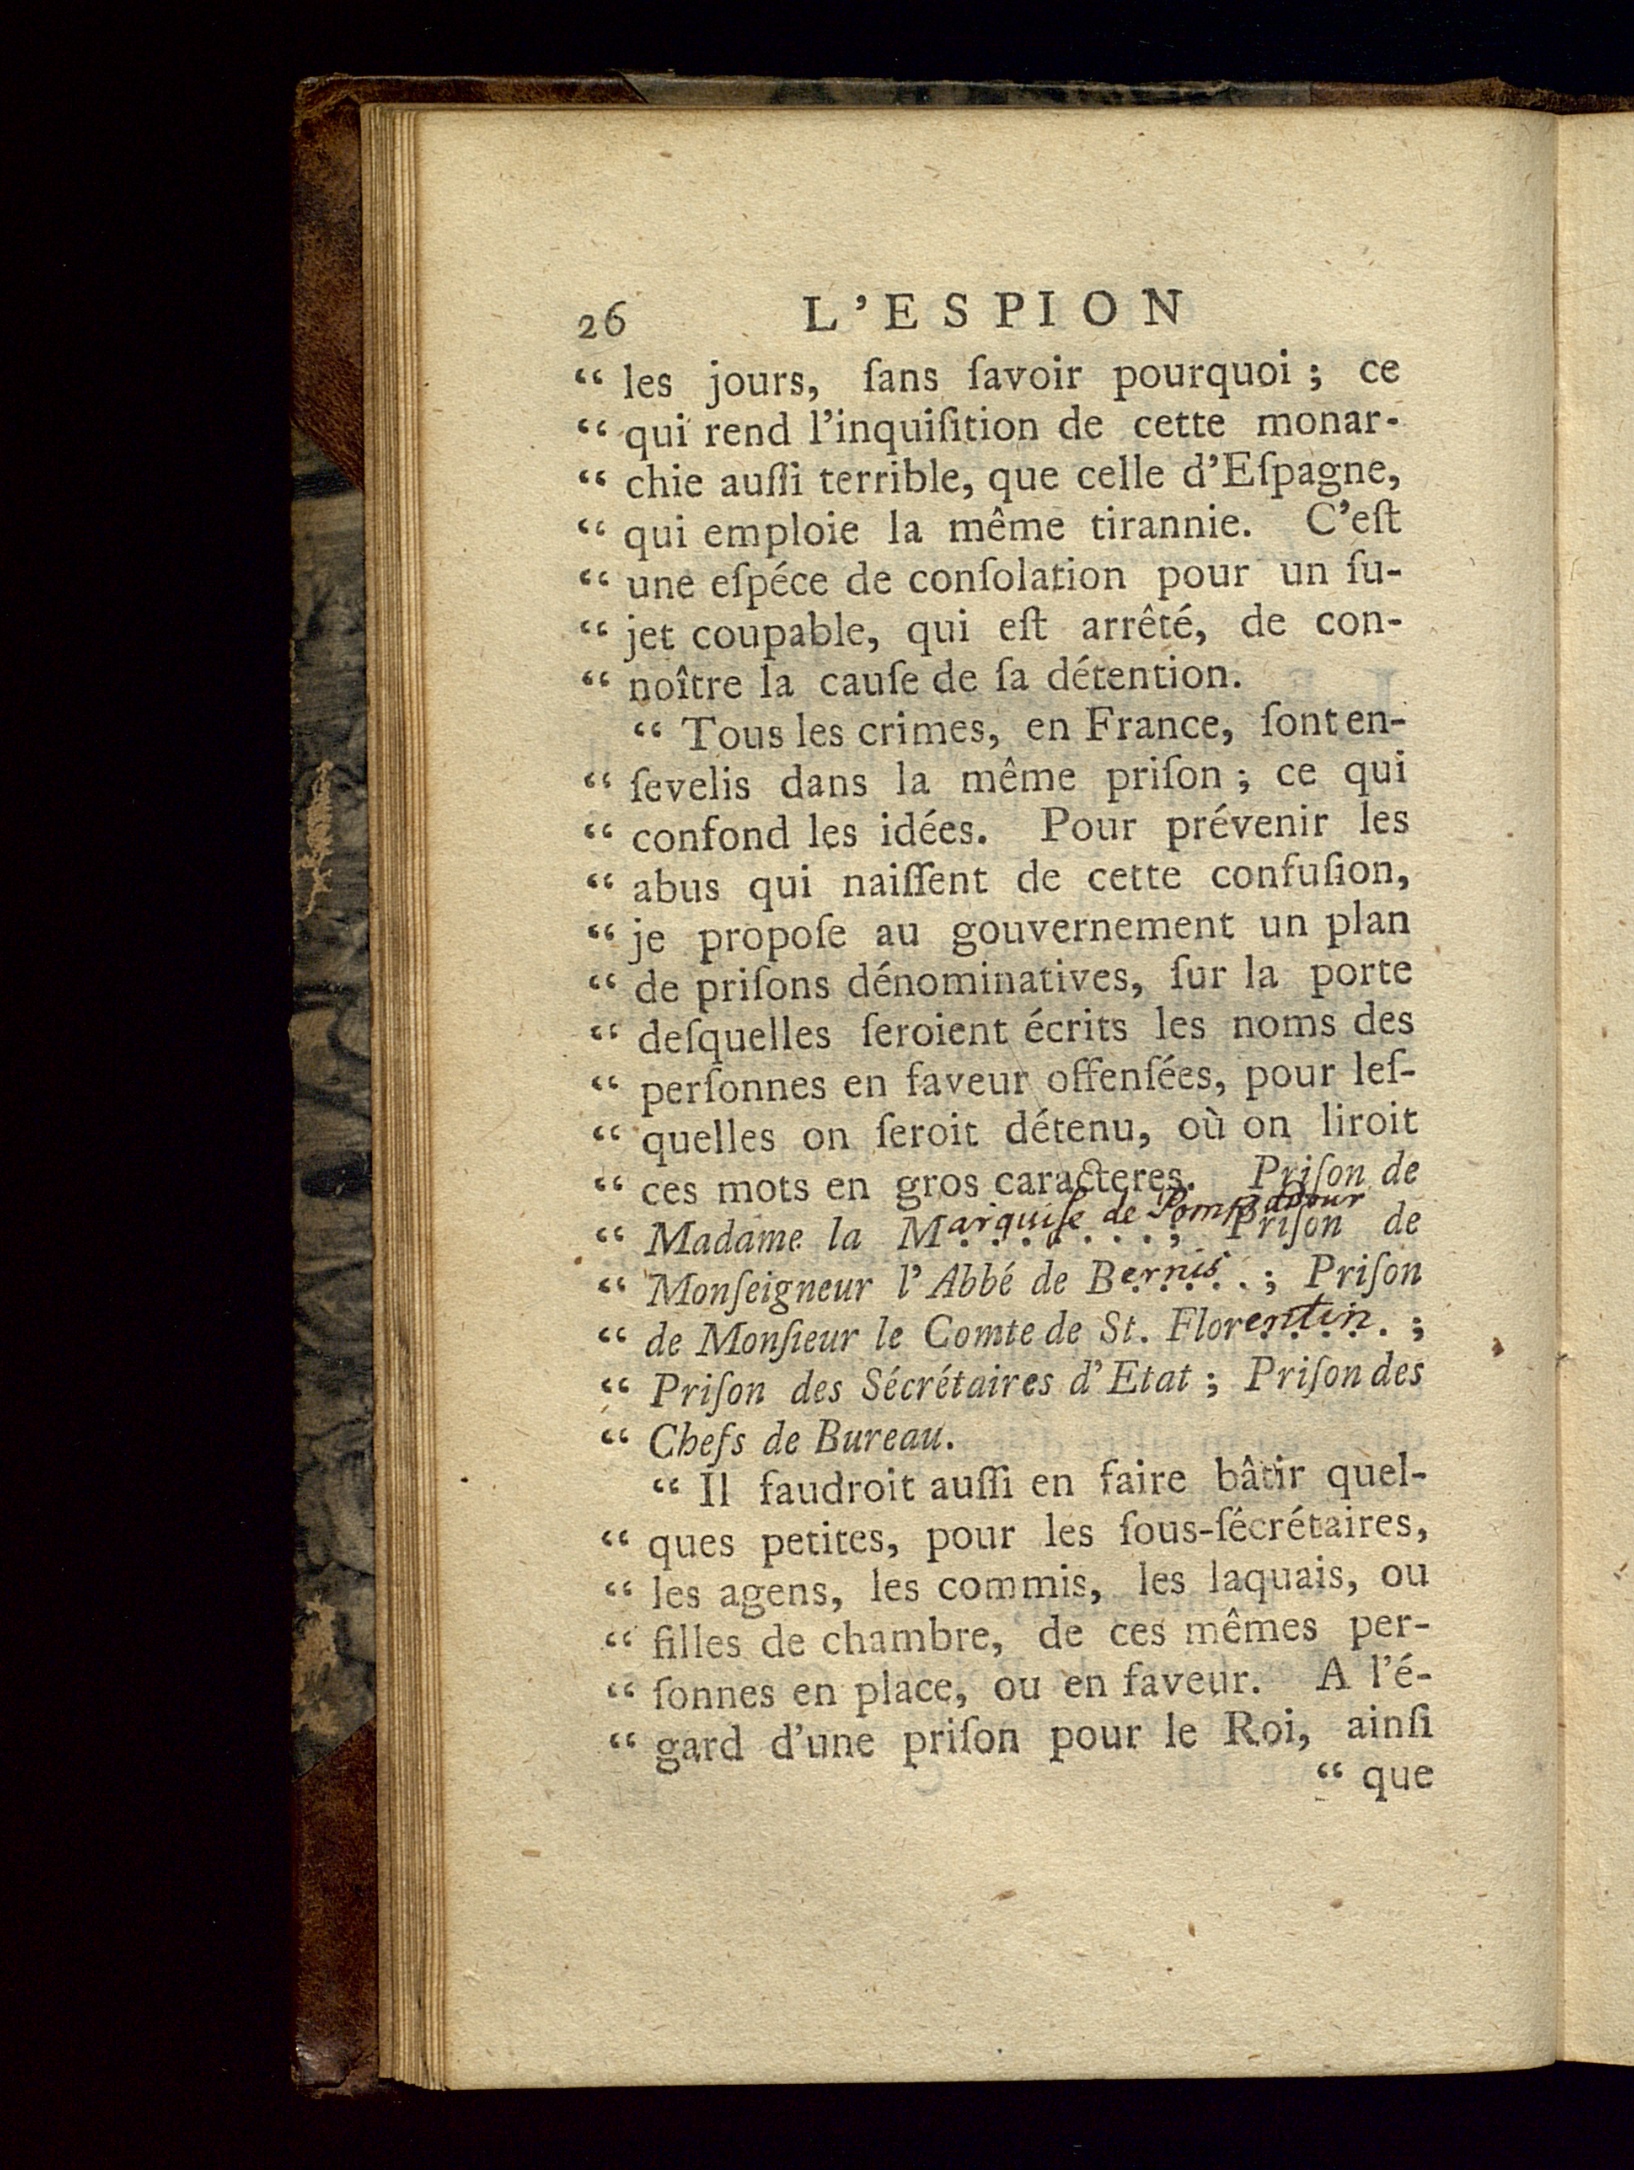 26 L'ESPION
“ les jours, ſans ſavoir pourquoi ; ce
“ qui rend l'inquiſition de cette monar-
“ chie auſſi terrible, que celle d'Eſpagne,
“ qui emploie la même tirannie. C'eſt
“ une eſpéce de conſolation pour un ſu-
“ jet coupable, qui eſt arrêté, de con-
“ noître la cauſe de ſa détention.
“ Tous les crimes, en France, ſont en-
“ ſevelis dans la même priſon ; ce qui
“ confond les idées. Pour prévenir les
“ abus qui naiſſent de cette confuſion,
“ je propoſe au gouvernement un plan
“ de priſons dénominatives, ſur la porte
“ deſquelles ſeroient écrits les noms des
“ perſonnes en faveur offenſées, pour leſ-
“ quelles on ſeroit détenu, où on liroit
“ ces mots en gros caracteres. Priſon de
“ Madame la Marquiſe de Pompadour ; Priſon de
“ Monſeigneur l'Abbé de Bernis . ; Priſon
“ de Monſieur le Comte de St. Florentin . ;
“ Priſon des Sécrétaires d'Etat ; Priſon des
“ Chefs de Bureau.
“ Il faudroit auſſi en faire bâtir quel-
“ ques petites, pour les ſous-ſécrétaires,
“ les agens, les commis, les laquais, ou
“ filles de chambre, de ces mêmes per-
“ ſonnes en place, ou en faveur. A l'é-
“ gard d'une priſon pour le Roi, ainſi
“ que